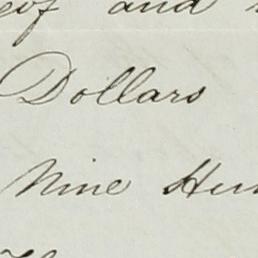 of and
Dollars
Nine